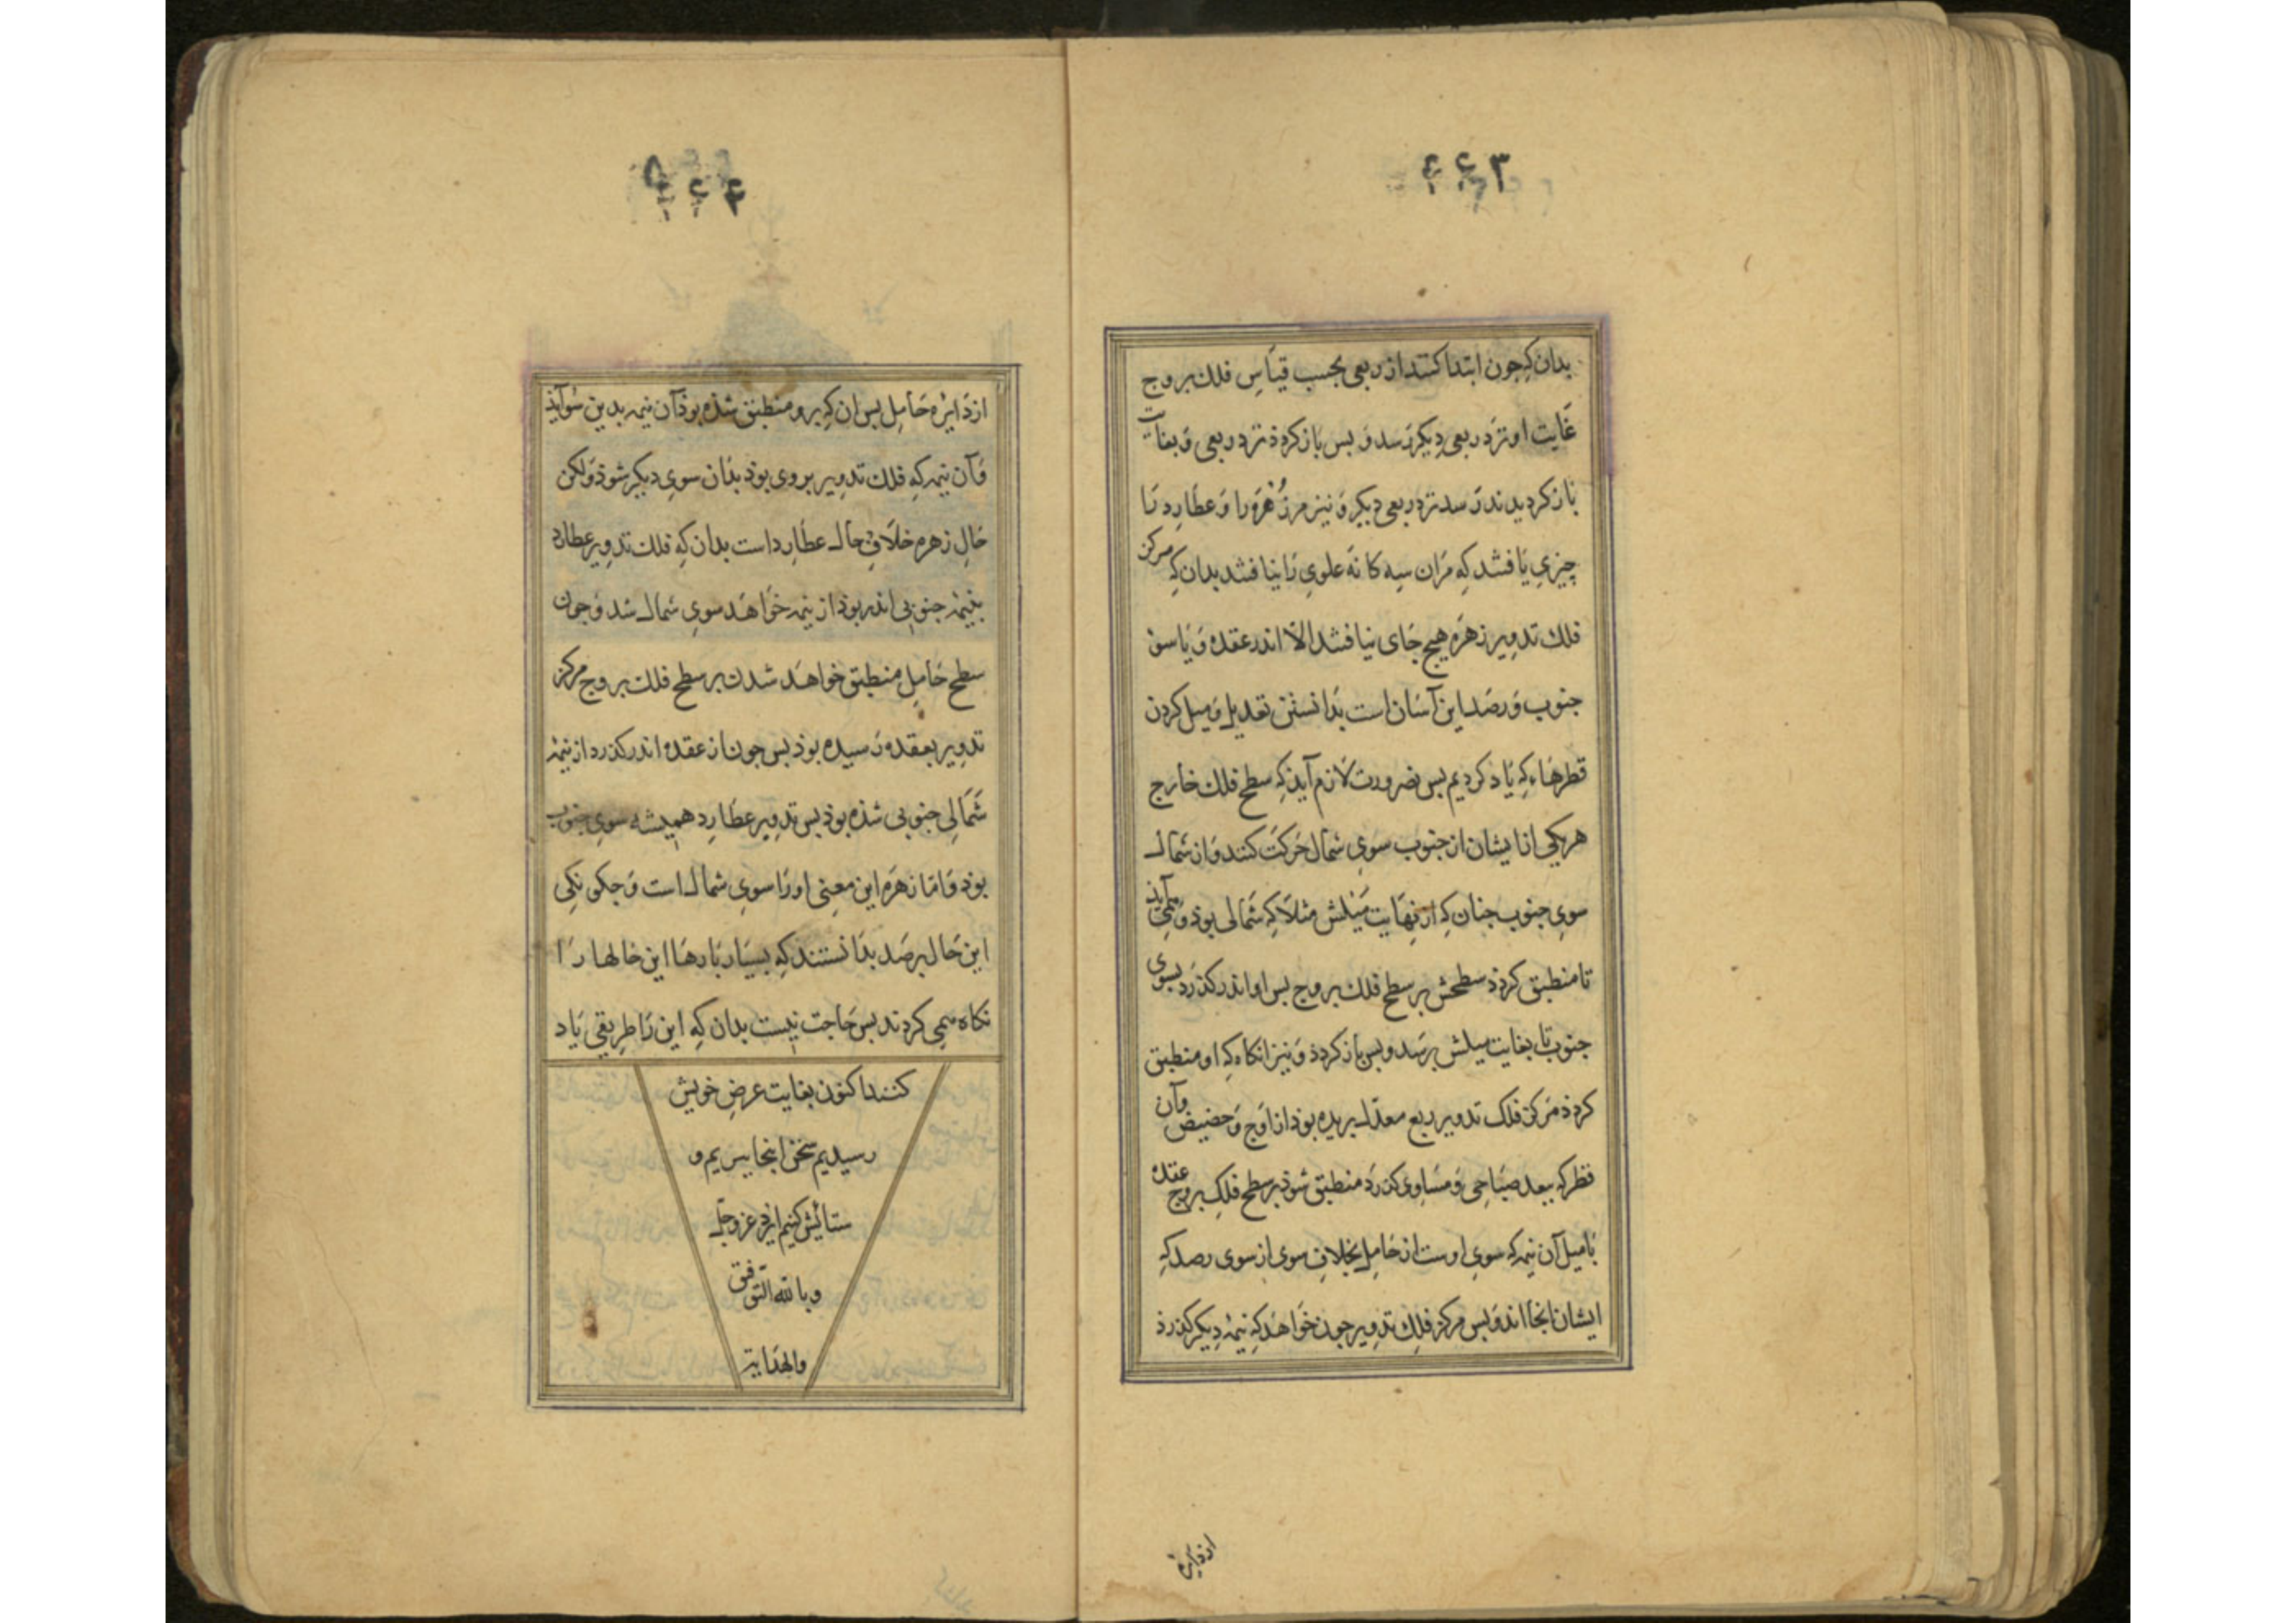 ۴۴۳
بدان که جون ابتدا کنند از ربعی بحسب قیاس فلک بروج
غایت او نزد ربعی دیکر رسد و بس باز کردذ نزد ربعی و بغایت
باز کردیدند رسد نزد ربعی دیکر و نیز مر زُهره را و عطارد را
چیزی یافتند که مران سه کانه علوی را نیافتند بدان که مرکز
فلک تدویر زهره هیج جای نیافتند الا اندر عقده و یا سوی
جنوب و رصد این آسان است بدانستن تعدیل و میل کردن
قطرهاء که یاذ کردیم بس بضرورت لازم آیذ که سطح فلک خارج
هر یکی از ایشان از جنوب سوی شمال حرکت کند و از شمال
سوی جنوب جنان که از نهایت میلش مثلا که شمالی بوذ و همی آیذ
تا منطبق کردذ سطحش بر سطح فلک بروج بس او اندر کذرد بسوی
جنوب تا بغایت میلش برسد و بس باز کردذ و نیز انکاه که او منطبق
کردذ مرکز فلک تدویر ربع معدل بریده بوذ از اوج و حضیض وآن
قطر که ببعد صباحی و مساوی کذرد منطبق شوذ بر سطح فلک بروج عقده
با میل آن نیمه که سوی اوست از حامل بخلاف سوی از سوی رصد که
ایشان انجا اند و بس مرکز فلک تدویر جون خواهد که نیمهٔ دیکر کذرذ
از دایره
۴۴۴
از دایره حامل بس ان که برو منطبق شذه بوذ آن نیمه بدین سو آیذ
و آن نیمه که فلک تدویر بروی بوذ بدان سوی دیکر شوذ و لکن
حال زهره خلاف حال عطارد است بدان که فلک تدویر عطارد
بنیمهٔ جنوبی اندر بوذ از نیمه خواهد سوی شمال شد و جون
سطح حامل منطبق خواهد شدن بر سطح فلک بروج مرکز
تدویر بعقده رسیده بوذ بس جون از عقده اندر کذرد از نیمهٔ
شمالی جنوبی شذه بوذ بس تدویر عطارد همیشه سوی جنوب
بوذ و اما زهره این معنی او را سوی شمال است و جکونکی
این حال برصد بدانستند که بسیار بارها این حالها را
نکاه همی کردند بس حاجت نیست بدان که این را طریقی یاد
کنند اکنون بغایت عرض خویش
رسیدیم سخن اینجا ببریم و
ستائش کنیم ایزد عز و جل
و بالله التوفیق
والهدایة